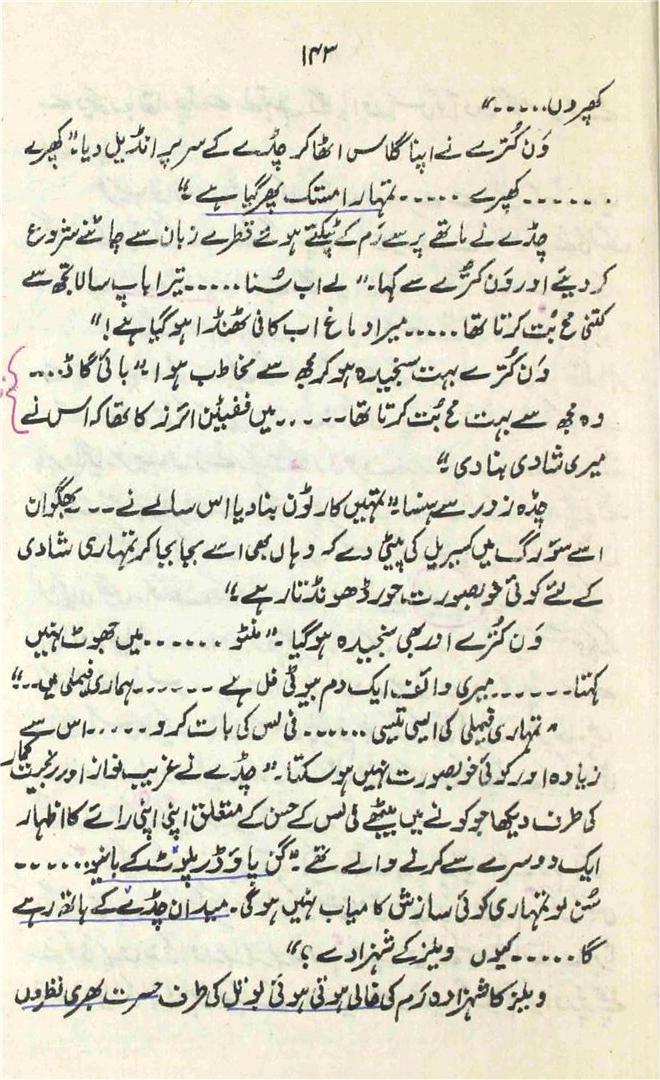 ۱۴۳
کھپروں....."
وَن کُترے نے اپنا گلاس اٹھا کر چڈے کے سر پر انڈیل دیا۔" کھپرے
...... کھپرے ..... تمہارا مستک پھر گیا ہے۔"
چڈے نے ماتھے پر سے رَم کے ٹپکتے ہوئے قطرے زبان سے چاٹنے شروع
کر دیئے اور وَن کُترے سے کہا۔" لے اب سُنا ..... تیرا باپ سالا تجھ سے
کتنی مح بُت کرتا تھا ..... میرا دماغ اب کافی ٹھنڈا ہو گیا ہے!"
وَن کُترے بہت سنجیدہ ہو کر مجھ سے مخاطب ہوا۔" بائی گاڈ....
وہ مجھ سے بہت مح بُت کرتا تھا ..... میں ففٹین ائرز کا تھا کہ اس نے
میری شادی بنا دی۔"
چڈہ زور سے ہنسا۔" تمہیں کارٹون بنا دیا اس سالے نے .. بھگوان
اسے سورگ میں کسیریل کی پیٹی دے کہ وہاں بھی اسے بجا بجا کر تمہاری شادی
کے لئے کوئی خوبصورت حور ڈھونڈتا رہے۔"
وَن کُترے اور بھی سنجیدہ ہو گیا۔" منٹو ...... میں جھوٹ نہیں
کہتا ...... میری وائف ایک دم بیوٹی فل ہے ...... ہماری فیملی میں.."
" تمہاری فیملی کی ایسی تیسی ...... فی لس کی بات کرو ..... اس سے
زیادہ اور کوئی خوبصورت نہیں ہو سکتا۔" چڈے نے غریب نواز اور رنجیت کمار
کی طرف دیکھا جو کونے میں بیٹھے فی لس کے حسن کے متعلق اپنی اپنی رائے کا اظہار
ایک دوسرے سے کرنے والے تھے۔" گن پاؤڈر پلوٹ کے بانیو .....
سُن لو تمہاری کوئی سازش کامیاب نہیں ہوگی۔ میدان چڈے کے ہاتھ رہے
گا ..... کیوں ویلز کے شہزادے؟"
ویلز کا شہزادہ رَم کی خالی ہوتی ہوئی بوتل کی طرف حسرت بھری نظروں